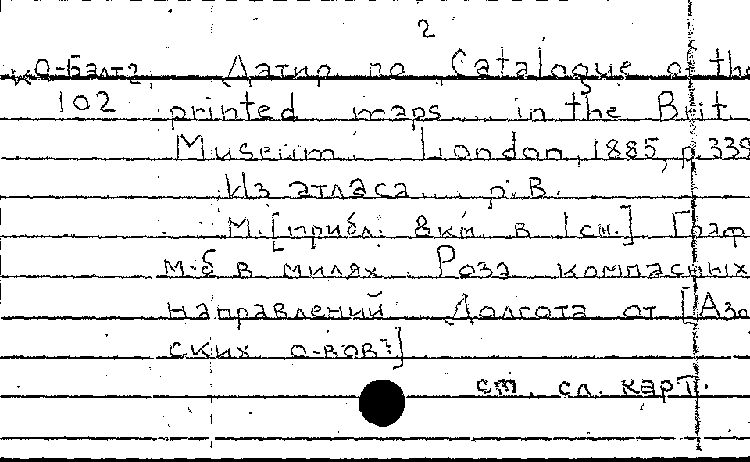 2
К0-Балт2 Датир по Catalogue of the
102 printed maps... in the Brit.
Museum. London, 1885, p.339
Из атласа... р.в.
М.[прибл. 8км в 1см.] Граф
м-б в милях. Роза компасных
направлений Долгота от [Азо
ских о-вов?]
см. сл. карт.